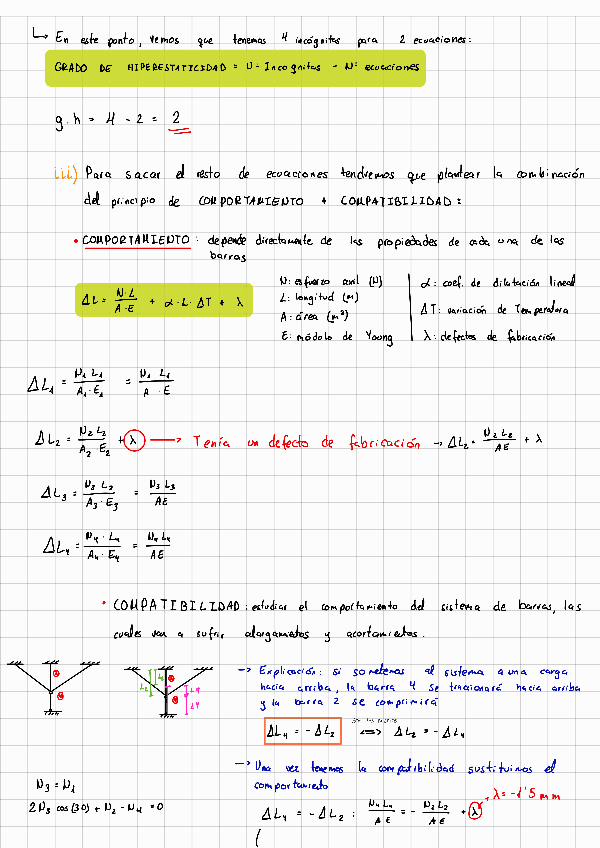 ↳ En este punto, vemos que tenemos 4 incógnitas para 2 ecuaciones:
GRADO DE HIPERESTATICIDAD = Nº Incognitas - Nº ecuaciones
g.h = 4 - 2 = 2
iii) Para sacar el resto de ecuaciones tendremos que plantear la combinación
del principio de COMPORTAMIENTO + COMPATIBILIDAD:
• COMPORTAMIENTO: depende directamente de las propiedades de cada una de las
barras
ΔL = N·L / A·E + α·L·ΔT + λ
N: esfuerzo axil (N)
L: longitud (m)
A: área (m²)
E: módulo de Young
α: coef. de dilatación lineal
ΔT: variación de Temperatura
λ: defectos de fabricación
ΔL₁ = N₁ L₁ / A₁·E₁ = N₁ L₁ / A·E
ΔL₂ = N₂ L₂ / A₂·E₂ + λ → Tenía un defecto de fabricación → ΔL₂ = N₂ L₂ / AE + λ
ΔL₃ = N₃ L₃ / A₃·E₃ = N₃ L₃ / AE
ΔL₄ = N₄·L₄ / A₄·E₄ = N₄ L₄ / AE
• COMPATIBILIDAD: estudiar el comportamiento del sistema de barras, las
cuales van a sufrir alargamientos y acortamientos.
→ Explicación: si sometemos al sistema a una carga
hacia arriba, la barra 4 se traccionará hacia arriba
y la barra 2 se comprimirá
ΔL₄ = - ΔL₂ ⟺ ΔL₂ = - ΔL₄
→ Una vez tenemos la compatibilidad sustituimos el
comportamiento
N₃ = N₁
2N₃ cos(30) + N₂ - N₄ = 0
ΔL₄ = - ΔL₂ : N₄ L₄ / AE = - N₂ L₂ / AE + λ → λ = -1'5 mm